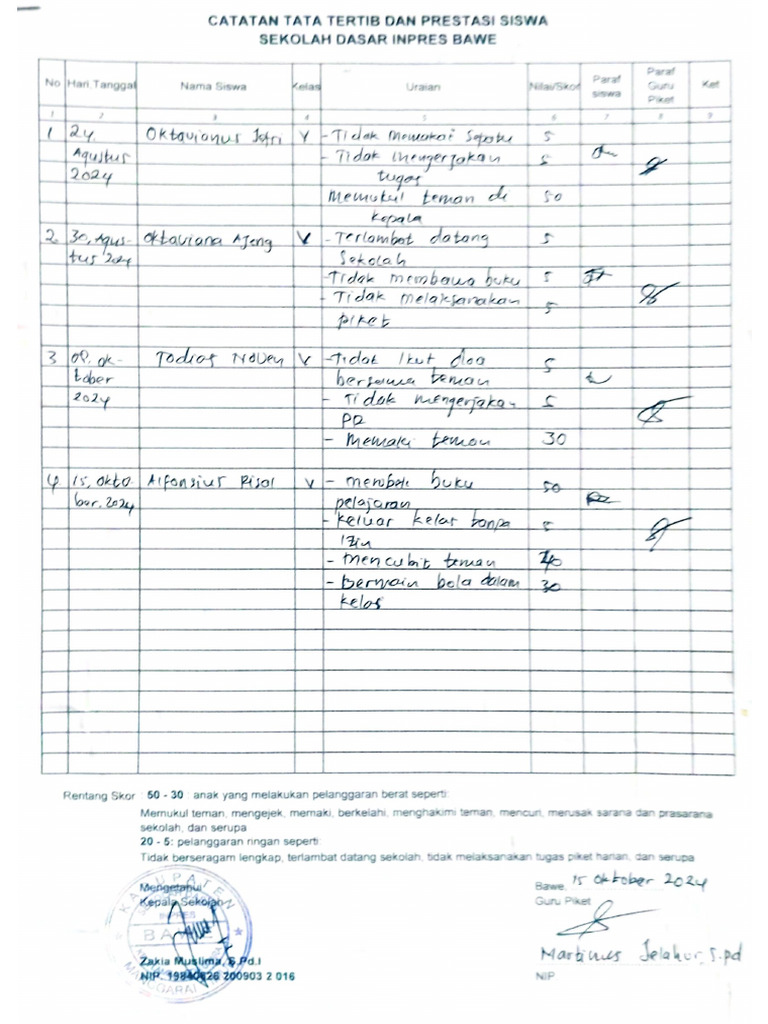 CATATAN TATA TERTIB DAN PRESTASI SISWA
SEKOLAH DASAR INPRES BAWE
No Hari, Tanggal Nama Siswa Kelas Uraian Nilai/Skor Paraf siswa Paraf Guru Piket Ket
1 2 3 4 5 6 7 8 9
1 24 Oktavianus Jefri V - Tidak memakai Sepatu 5
Agustus - Tidak mengerjakan 5
2024 tugas
Memukul teman di 50
kepala
2 30, Agus- Oktaviana Ajeng V - Terlambat datang 5
tus 2024 Sekolah
- Tidak membawa buku 5
- Tidak melaksanakan 5
piket
3 08, ok- Noven V - Tidak Ikut doa 5
tober bersama teman
2024 - Tidak mengerjakan 5
PR
- Memaki teman 30
4 15, Okto Alfonsius Risal V - merobek buku 50
ber, 2024 pelajaran
- Keluar kelas tanpa 5
Izin
- mencubit teman 40
- Bermain bola dalam 30
kelas
Rentang Skor : 50 - 30 : anak yang melakukan pelanggaran berat seperti:
Memukul teman, mengejek, memaki, berkelahi, menghakimi teman, mencuri, merusak sarana dan prasarana
sekolah, dan serupa
20 - 5: pelanggaran ringan seperti:
Tidak berseragam lengkap, terlambat datang sekolah, tidak melaksanakan tugas piket harian, dan serupa
Mengetahui
Kepala Sekolah
KABUPATEN
INPRES
BAWE
MANGGARAI
Zakia Muslima, S.Pd.I
NIP. 19840626 200903 2 016
Bawe, 15 Oktober 2024
Guru Piket
Martinus Jelahur, S.pd
NIP